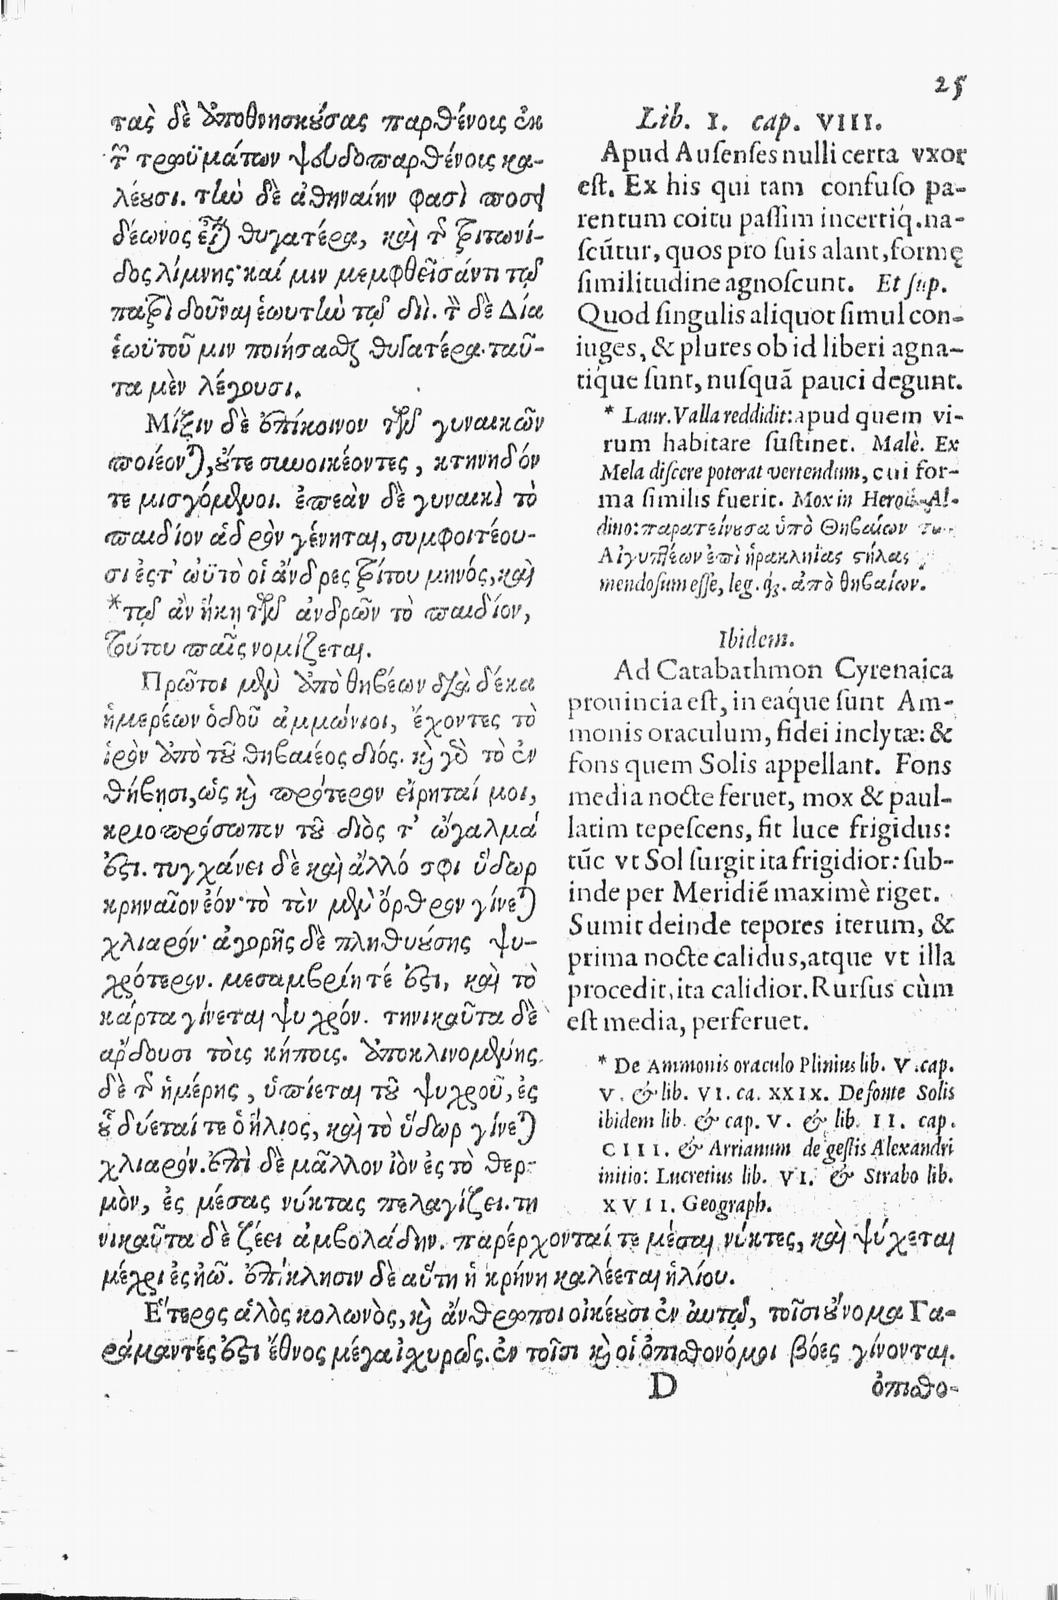 25
τὰς δὲ ἀποθνησκούσας παρθένους ἐκ
τῶν τρωϋμάτων ψευδοπαρθένους κα-
λέουσι. τὴν δὲ ἀθηναίην φασὶ ποσει
δέωνος εἶναι θυγατέρα, καὶ τῆς Τριτωνί-
δος λίμνης· καί μιν μεμφθεῖσάν τι τῷ
πατρὶ δοῦναι ἑωυτὴν τῷ διί. τὸν δὲ Δία
ἑωϋτοῦ μιν ποιήσασθαι θυγατέρα· ταῦ-
τα μὲν λέγουσι.
Μίξιν δὲ ἐπίκοινον τῶν γυναικῶν
ποιέονται, οὔτε συνοικέοντες, κτηνηδόν
τε μισγόμενοι. ἐπεὰν δὲ γυναικὶ τὸ
παιδίον ἁδρὸν γένηται, συμφοιτέου-
σι ἐς τ' ὠϋτὸ οἱ ἄνδρες τρίτου μηνός, καὶ
*τῷ ἂν ἥκῃ τῶν ἀνδρῶν τὸ παιδίον,
τούτου παῖς νομίζεται.
Πρῶτοι μὲν ἀπὸ θηβέων διὰ δέκα
ἡμερέων ὁδοῦ ἀμμώνιοι, ἔχοντες τὸ
ἱρὸν ἀπὸ τοῦ θηβαιέος διός. καὶ γὰρ τὸ ἐν
θήβῃσι, ὡς καὶ πρότερον εἴρηταί μοι,
κριοπρόσωπον τοῦ διὸς τ' ὤγαλμά
ἐστι. τυγχάνει δὲ καὶ ἄλλό σφι ὕδωρ
κρηναῖον ἐόν· τὸ τὸν μὲν ὄρθρον γίνεται
χλιαρόν· ἀγορῆς δὲ πληθυούσης ψυ-
χρότερον. μεσαμβρίη τέ ἐστι, καὶ τὸ
κάρτα γίνεται ψυχρόν. τηνικαῦτα δὲ
ἄρδουσι τοὶς κήποις. ἀποκλινομένης
δὲ τῆς ἡμέρης, ὑπίεται τοῦ ψυχροῦ, ἐς
οὗ δύεταί τε ὁ ἥλιος, καὶ τὸ ὕδωρ γίνεται
χλιαρόν. ἐπὶ δὲ μᾶλλον ἰὸν ἐς τὸ θερ-
μὸν, ἐς μέσας νύκτας πελαγίζει. τη
νικαῦτα δὲ ζέει ἀμβολάδην. παρέρχονταί τε μέσαι νύκτες, καὶ ψύχεται
μέχρι ἐς ἠῶ. ἐπίκλησιν δὲ αὕτη ἡ κρήνη καλέεται ἡλίου.
Ἕτερος ἁλὸς κολωνὸς, καὶ ἄνθρωποι οἰκέουσι ἐν αὐτῷ, τοῖσι οὔνομα Γα-
ράμαντές ἐστι ἔθνος μέγα ἰχυρῶς. ἐν τοῖσι καὶ οἱ ὀπισθονόμοι βόες γίνονται.
Lib. I. cap. VIII.
Apud Ausenses nulli certa vxor
est. Ex his qui tam confuso pa-
rentum coitu passim incertiq́. na-
scūtur, quos pro suis alant, formę
similitudine agnoscunt. Et sup.
Quod singulis aliquot simul con-
iuges, & plures ob id liberi agna-
tiq́ue sunt, nusquā pauci degunt.
* Laur. Valla reddidit: apud quem vi-
rum habitare sustinet. Malè. Ex
Mela discere poterat vertendum, cui for-
ma similis fuerit. Mox in Herod. Al-
dino: παρατείνουσα ὑπὸ Θηβαίων
Αἰγυπτίων ἐπὶ ἡρακληΐας στήλας
mendosum esse, leg. q́; ἀπὸ θηβαίων.
Ibidem.
Ad Catabathmon Cyrenaica
prouincia est, in eaq́ue sunt Am-
monis oraculum, fidei inclytæ: &
fons quem Solis appellant. Fons
media nocte feruet, mox & paul-
latim tepescens, fit luce frigidus:
tūc vt Sol surgit ita frigidior: sub-
inde per Meridiē maximè riget.
Sumit deinde tepores iterum, &
prima nocte calidus, atque vt illa
procedit, ita calidior. Rursus cùm
est media, perferuet.
* De Ammonis oraculo Plinius lib. V. cap.
V. & lib. VI. ca. XXIX. De fonte Solis
ibidem lib. & cap. V. & lib. II. cap.
CIII. & Arrianum de gestis Alexandri
initio: Lucretius lib. VI. & Strabo lib.
XVII. Geograph.
D
ὀπισθο-